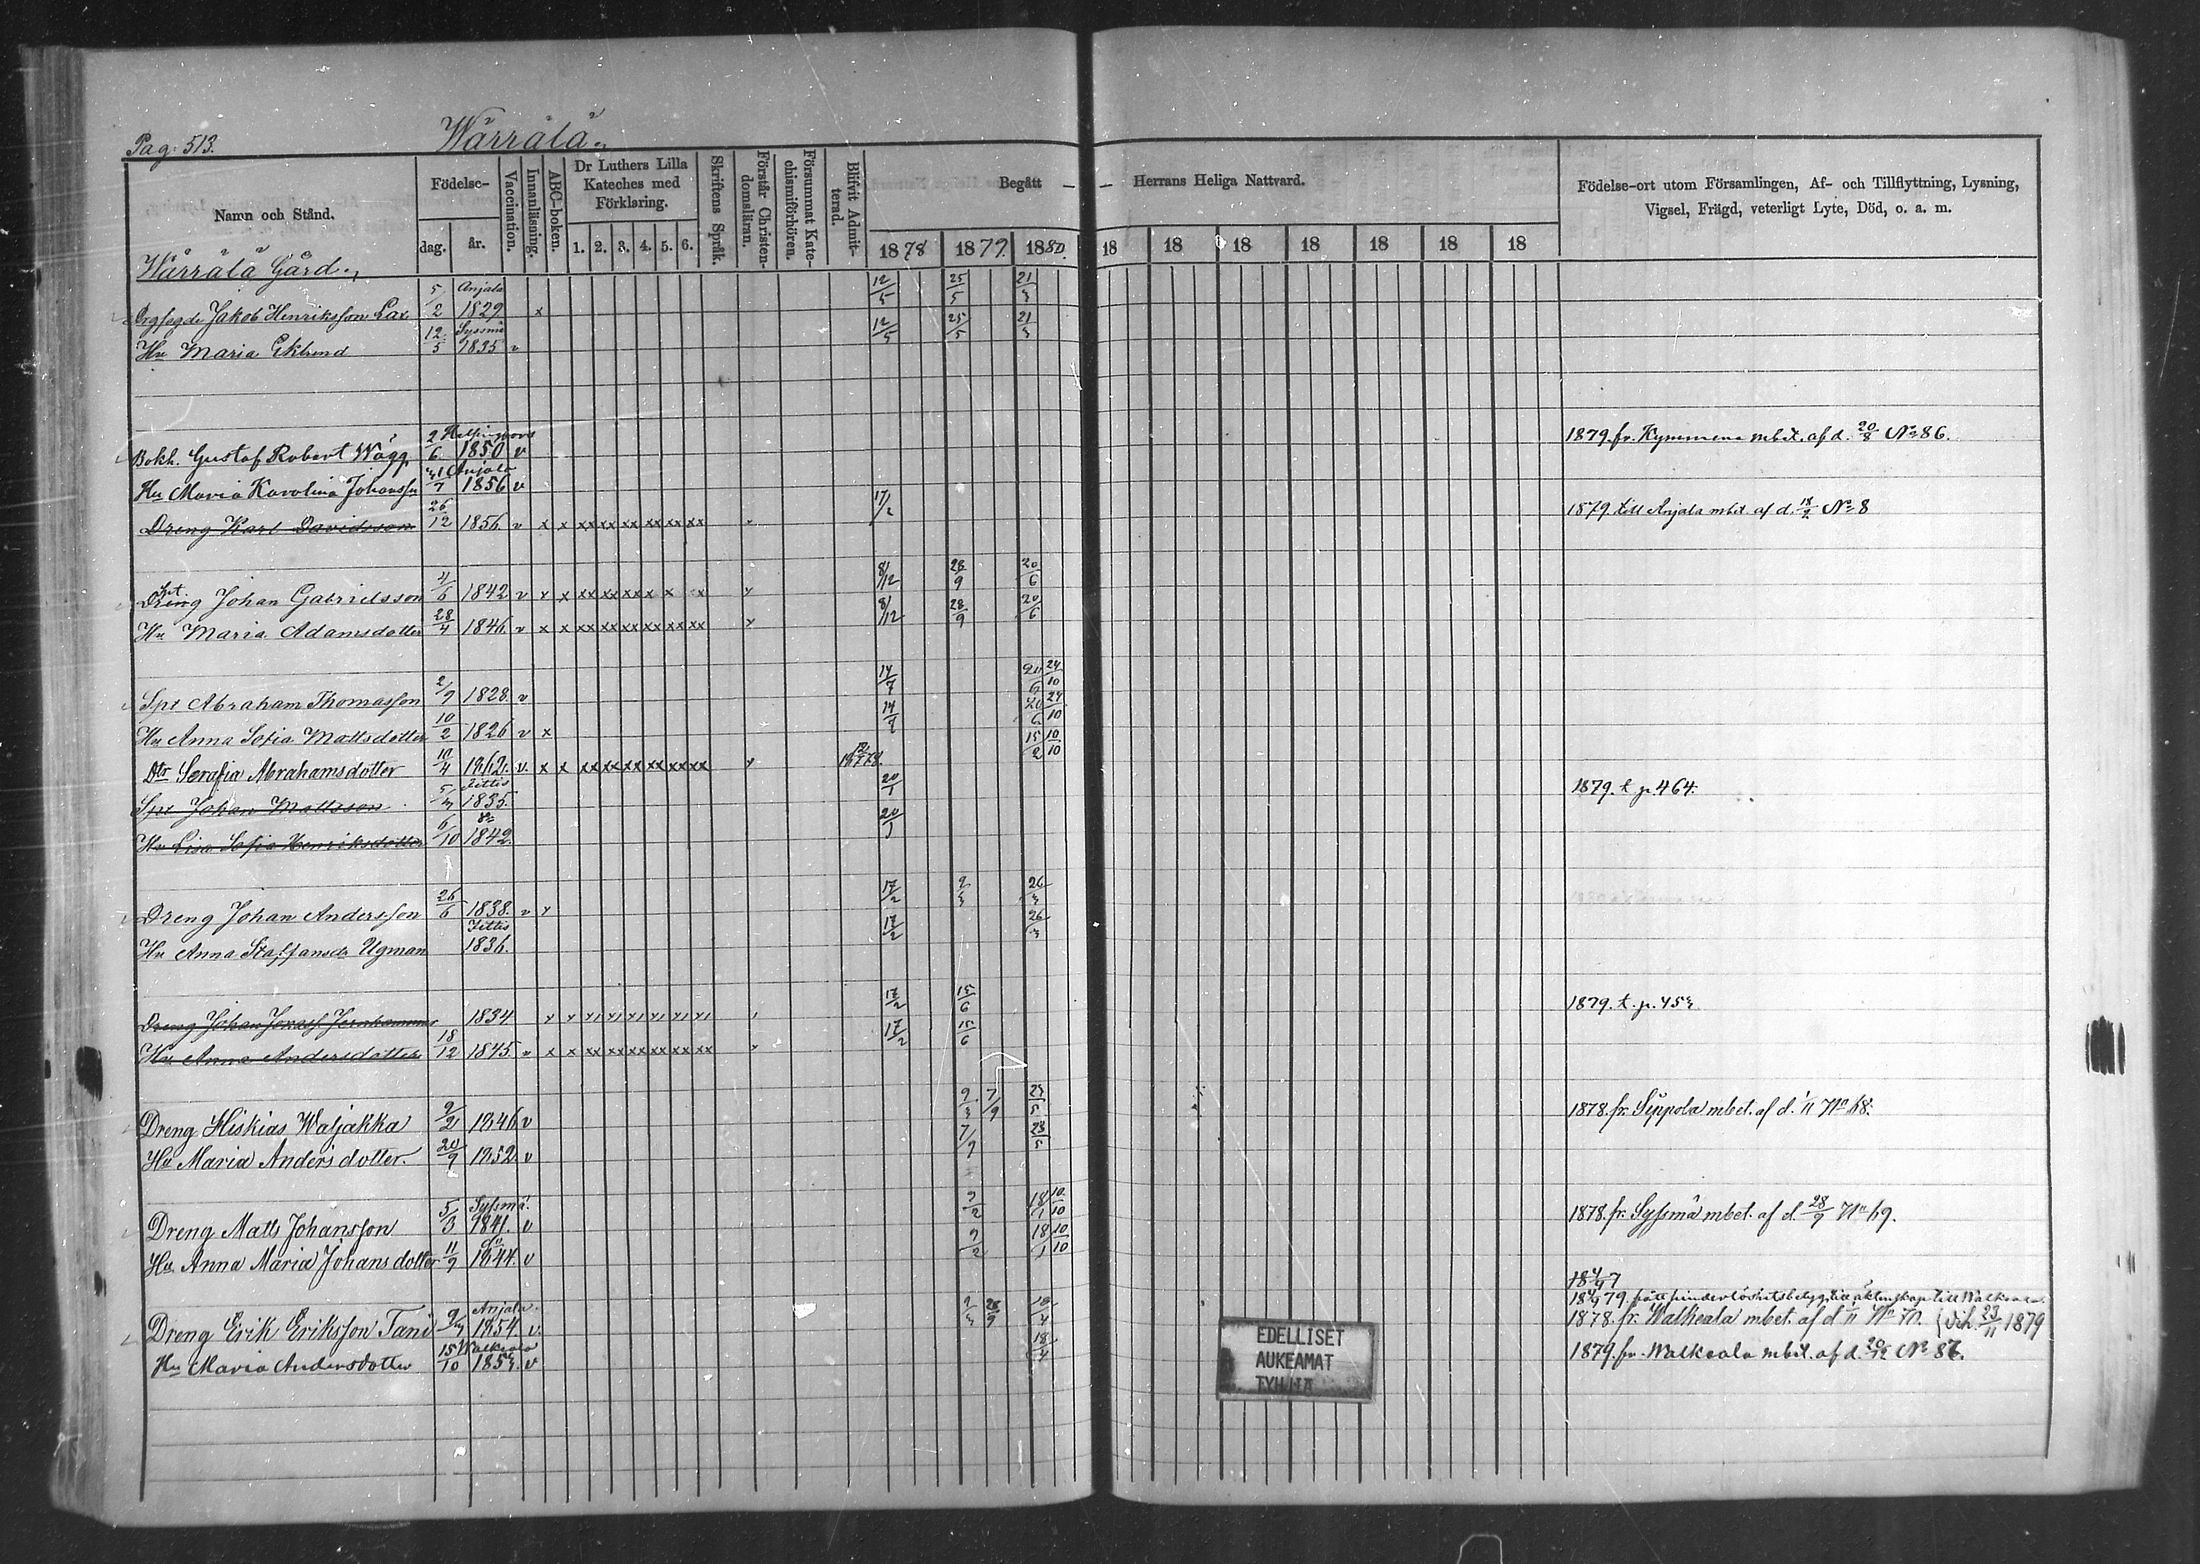 Pag: 513. Wärrälä
Namn och Stånd. Födelse- dag. år. Vaccination. Innanläsning. ABC-boken. Dr Luthers Lilla Kateches med Förklaring. 1. 2. 3. 4. 5. 6. Skriftens Språk. Förstår Christendomsläran. Försummat Katechismiförhören. Blifvit Admitterad. Begått — — Herrans Heliga Nattvard. 1878 1879. 1880. 18 18 18 18 18 18 18 Födelse-ort utom Församlingen, Af- och Tillflyttning, Lysning, Vigsel, Frägd, veterligt Lyte, Död, o. a. m.
Wärrälä Gård
Jakob Henriksson Lax 5/2 Anjala 1829 x 12/5 25/5 21/3
Hu Maria Eklund 12/5 Syssmä 1835 v 12/5 25/5 21/3
Bokh. Gustaf Robert Wägg 2/6 Helsingfors 1850 v 1879. fr. Kymmene mbet. af d. 20/8 No 86.
Hu Maria Karolina Johanss 31/7 Anjala 1856 v
Dreng Karl Davidsson 26/12 1856 v x x xx xx xx xx xx xx 17/2 1879 till Anjala mbet af d. No 8
Dreng Johan Gabrielsson 4/6 1842 v x x xx xx xx x x x 8/12 28/9 20/6
Hu Maria Adamsdotter 28/4 1846 v x x xx xx xx xx xx xx 8/12 28/9 20/6
Spt Abraham Thomasson 2/9 1828. v 14/7 20/6 24/10
Hu Anna Sofia Mattsdotter 10/2 1826 v x 14/7 20/6 24/10
Dtr Serafia Abrahamsdotter 10/4 1862. v. x x xx xx xx xx xx xx 15/2 10/10
Spt Johan Mattsson 5/3 Jittis 1835. 20/1 1879. t. p. 464.
Hu Lisa Sofia Henriksdotter 6/10 1842. 20/1
Dreng Johan Andersson 26/6 1838. v x 17/2 2/3 26/3
Hu Anna Staffansdr Ugman Jittis 1836. 17/2 26/3
Dreng Johan 1834 17/2 15/6 1879. t. p. 453
Hu Anna Andersdotter 18/12 1845 v x x xx xx xx xx xx xx 17/2 15/6
Dreng Hiskias Waljakka 9/2 1846 v 9/3 7/9 23/5 1878. fr. Sippola mbet. af d. 1/11 No 68.
Hu Maria Andersdotter. 20/9 1852 v 7/9 23/5
Dreng Matts Johansson 5/3 Syssmä. 1841. v 9/2 18/1 10/10 1878. fr. Syssmä mbet. af d. 28/9 No 69.
Hu Anna Maria Johansdotter 11/9 do 1844. v 9/2 18/1 10/10
Dreng Erik Eriksson Tani Anjala. 1854 v. 28/9 18/4 1878. fr. Walkeala mbet. af d 1/11 No 70. 23/11 1879
Hu Maria Andersdotter 15/10 Walkeala v 18/4 1879. fr. Walkeala mbet. af d. 20/12 No 87.
EDELLISET
AUKEAMAT
TYHJIÄ